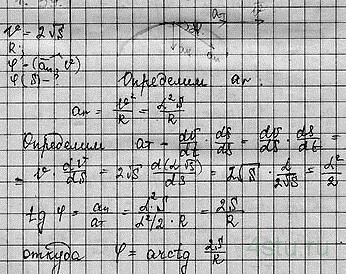 v = α√S
R;
φ - (a⃗n, v⃗)
φ(S) - ?
Определим an.
an = v²/R = α²S/R
Определим aτ = dv/dt · dS/dS = dv/dS · dS/dt =
= v dv/dS = α√S · d(α√S)/dS = α√S · α/2√S = α²/2
tg φ = an/aτ = α²·S/α²/2 · R = 2S/R
откуда φ = arctg 2S/R